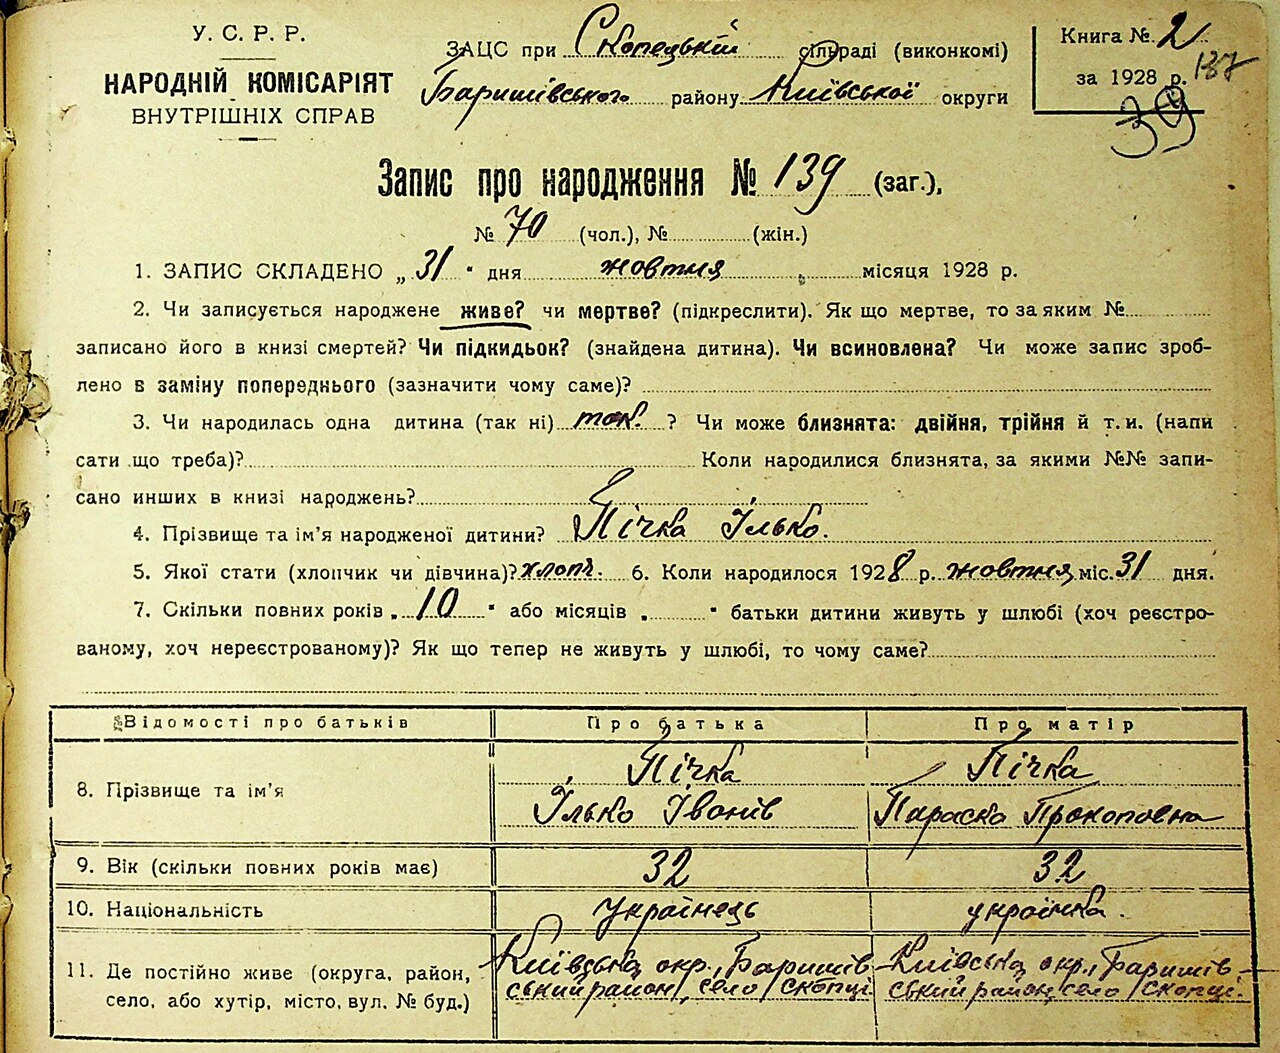 У. С. Р. Р.
НАРОДНІЙ КОМІСАРІЯТ
ВНУТРІШНІХ СПРАВ
ЗАЦС при Скопецькій сільраді (виконкомі)
Баришівського району Київської округи
Книга №. 2
за 1928 р.
137
39
Запис про народження № 139 (заг.),
№ 70 (чол.), № (жін.)
1. ЗАПИС СКЛАДЕНО „ 31 " дня жовтня місяця 1928 р.
2. Чи записується народжене живе? чи мертве? (підкреслити). Як що мертве, то за яким №
записано його в книзі смертей? Чи підкидьок? (знайдена дитина). Чи всиновлена? Чи може запис зроб-
лено в заміну попереднього (зазначити чому саме)?
3. Чи народилась одна дитина (так ні) так. ? Чи може близнята: двійня, трійня й т. и. (напи
сати що треба)? Коли народилися близнята, за якими №№ запи-
сано инших в книзі народжень?
4. Прізвище та ім'я народженої дитини? Пічка Ілько.
5. Якої стати (хлопчик чи дівчина)? хлопч. 6. Коли народилося 1928 р. жовтня міс. 31 дня.
7. Скільки повних років „ 10 " або місяців „ " батьки дитини живуть у шлюбі (хоч реєстро-
ваному, хоч нереєстрованому)? Як що тепер не живуть у шлюбі, то чому саме?
Відомості про батьків Про батька Про матір
8. Прізвище та ім'я Пічка Ілько Іванів Пічка Параска Прокоповна
9. Вік (скільки повних років має) 32 32
10. Національність Українець українка.
11. Де постійно живе (округа, район, Київська окр., Баришів Київська окр., Баришів-
село, або хутір, місто, вул. № буд.) ський район, село Скопці ський район, село Скопці.